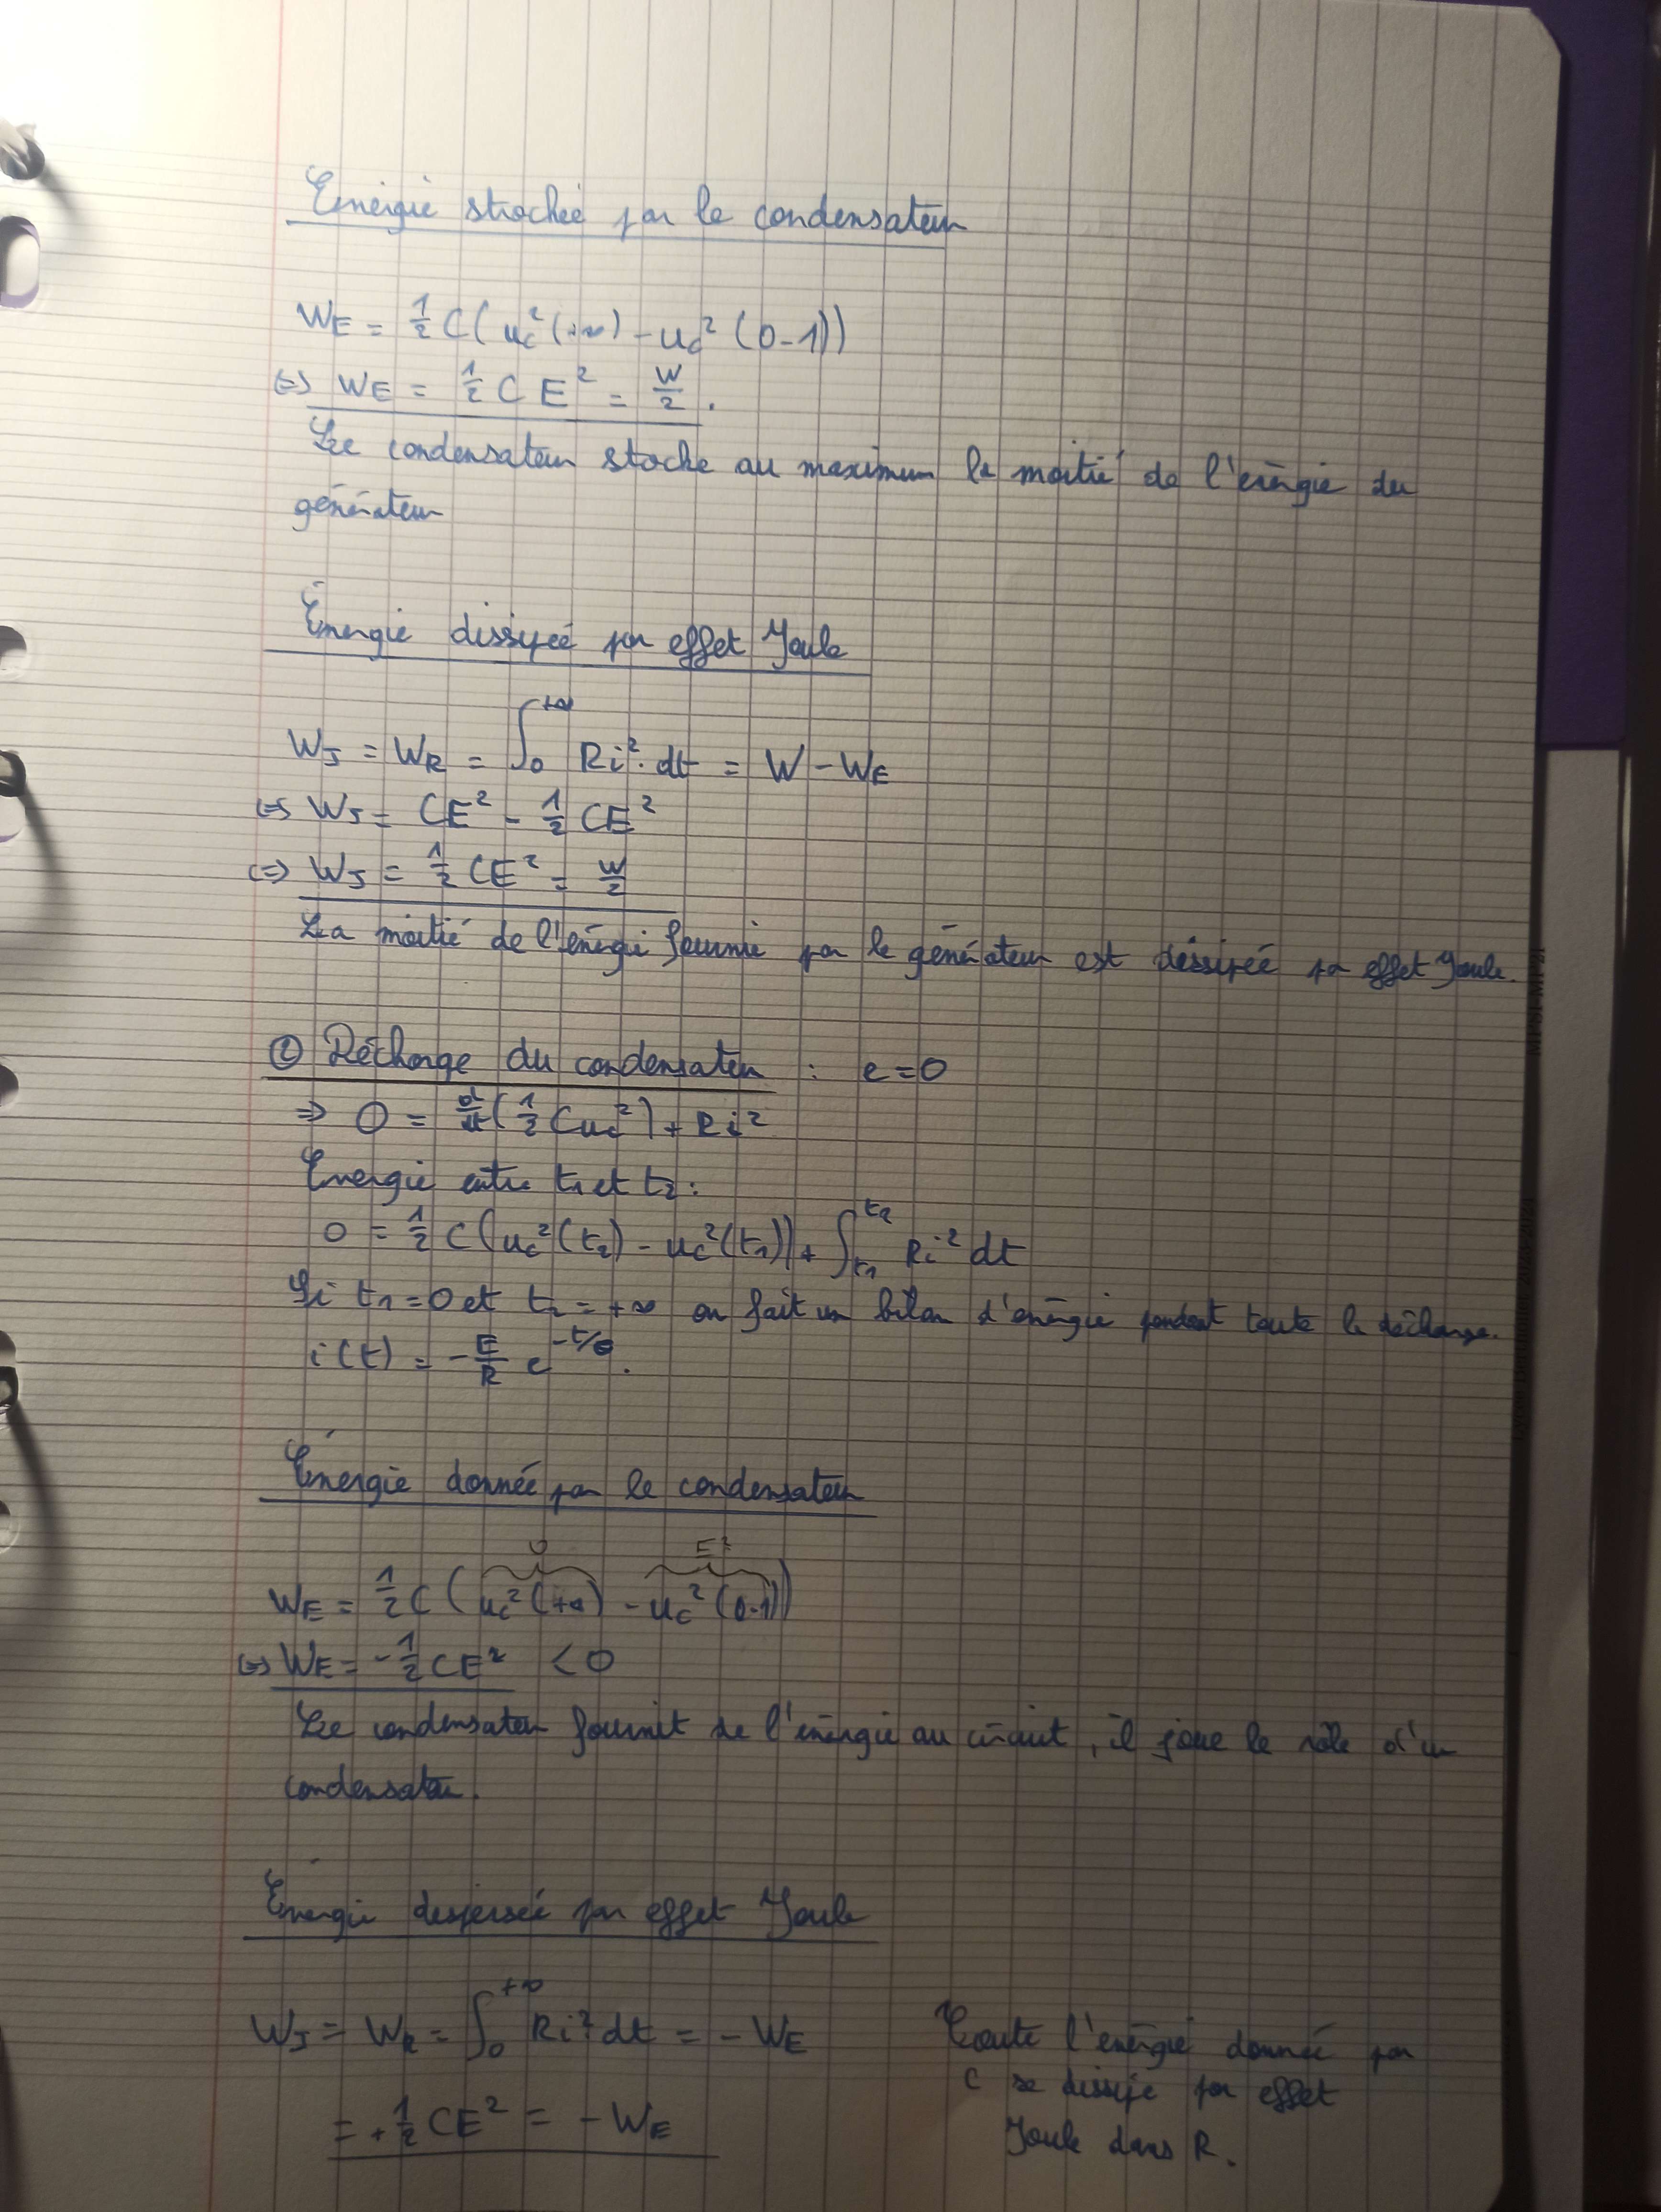 Énergie strockée par le condensateur
WE = 1/2 C(uc²(+∞) - uc²(0-1))
⇔ WE = 1/2 C E² = W/2.
Le condensateur stocke au maximum la moitié de l'énergie du
générateur
Énergie dissipée par effet Joule
WJ = WR = ∫₀^+∞ Ri²·dt = W - WE
⇔ WJ = CE² - 1/2 CE²
⇔ WJ = 1/2 CE² = W/2
La moitié de l'énergie fournie par le générateur est dissipée par effet Joule.
② Décharge du condensateur : e=0
⇒ 0 = d/dt(1/2 Cuc²) + Ri²
Énergie entre t1 et t2 :
0 = 1/2 C(uc²(t2) - uc²(t1)) + ∫t1^t2 Ri² dt
Si t1=0 et t2=+∞ on fait un bilan d'énergie pendant toute la décharge.
i(t) = -E/R e^-t/σ.
Énergie donnée par le condensateur
0 E²
WE = 1/2 C(uc²(+∞) - uc²(0-1))
⇔ WE = -1/2 CE² <0
Le condensateur fournit de l'énergie au circuit, il joue le rôle d'un
condensateur.
Énergie dispersée par effet Joule
WJ = WR = ∫₀^+∞ Ri² dt = - WE
= +1/2 CE² = - WE
Toute l'énergie donnée par
C se dissipe par effet
Joule dans R.